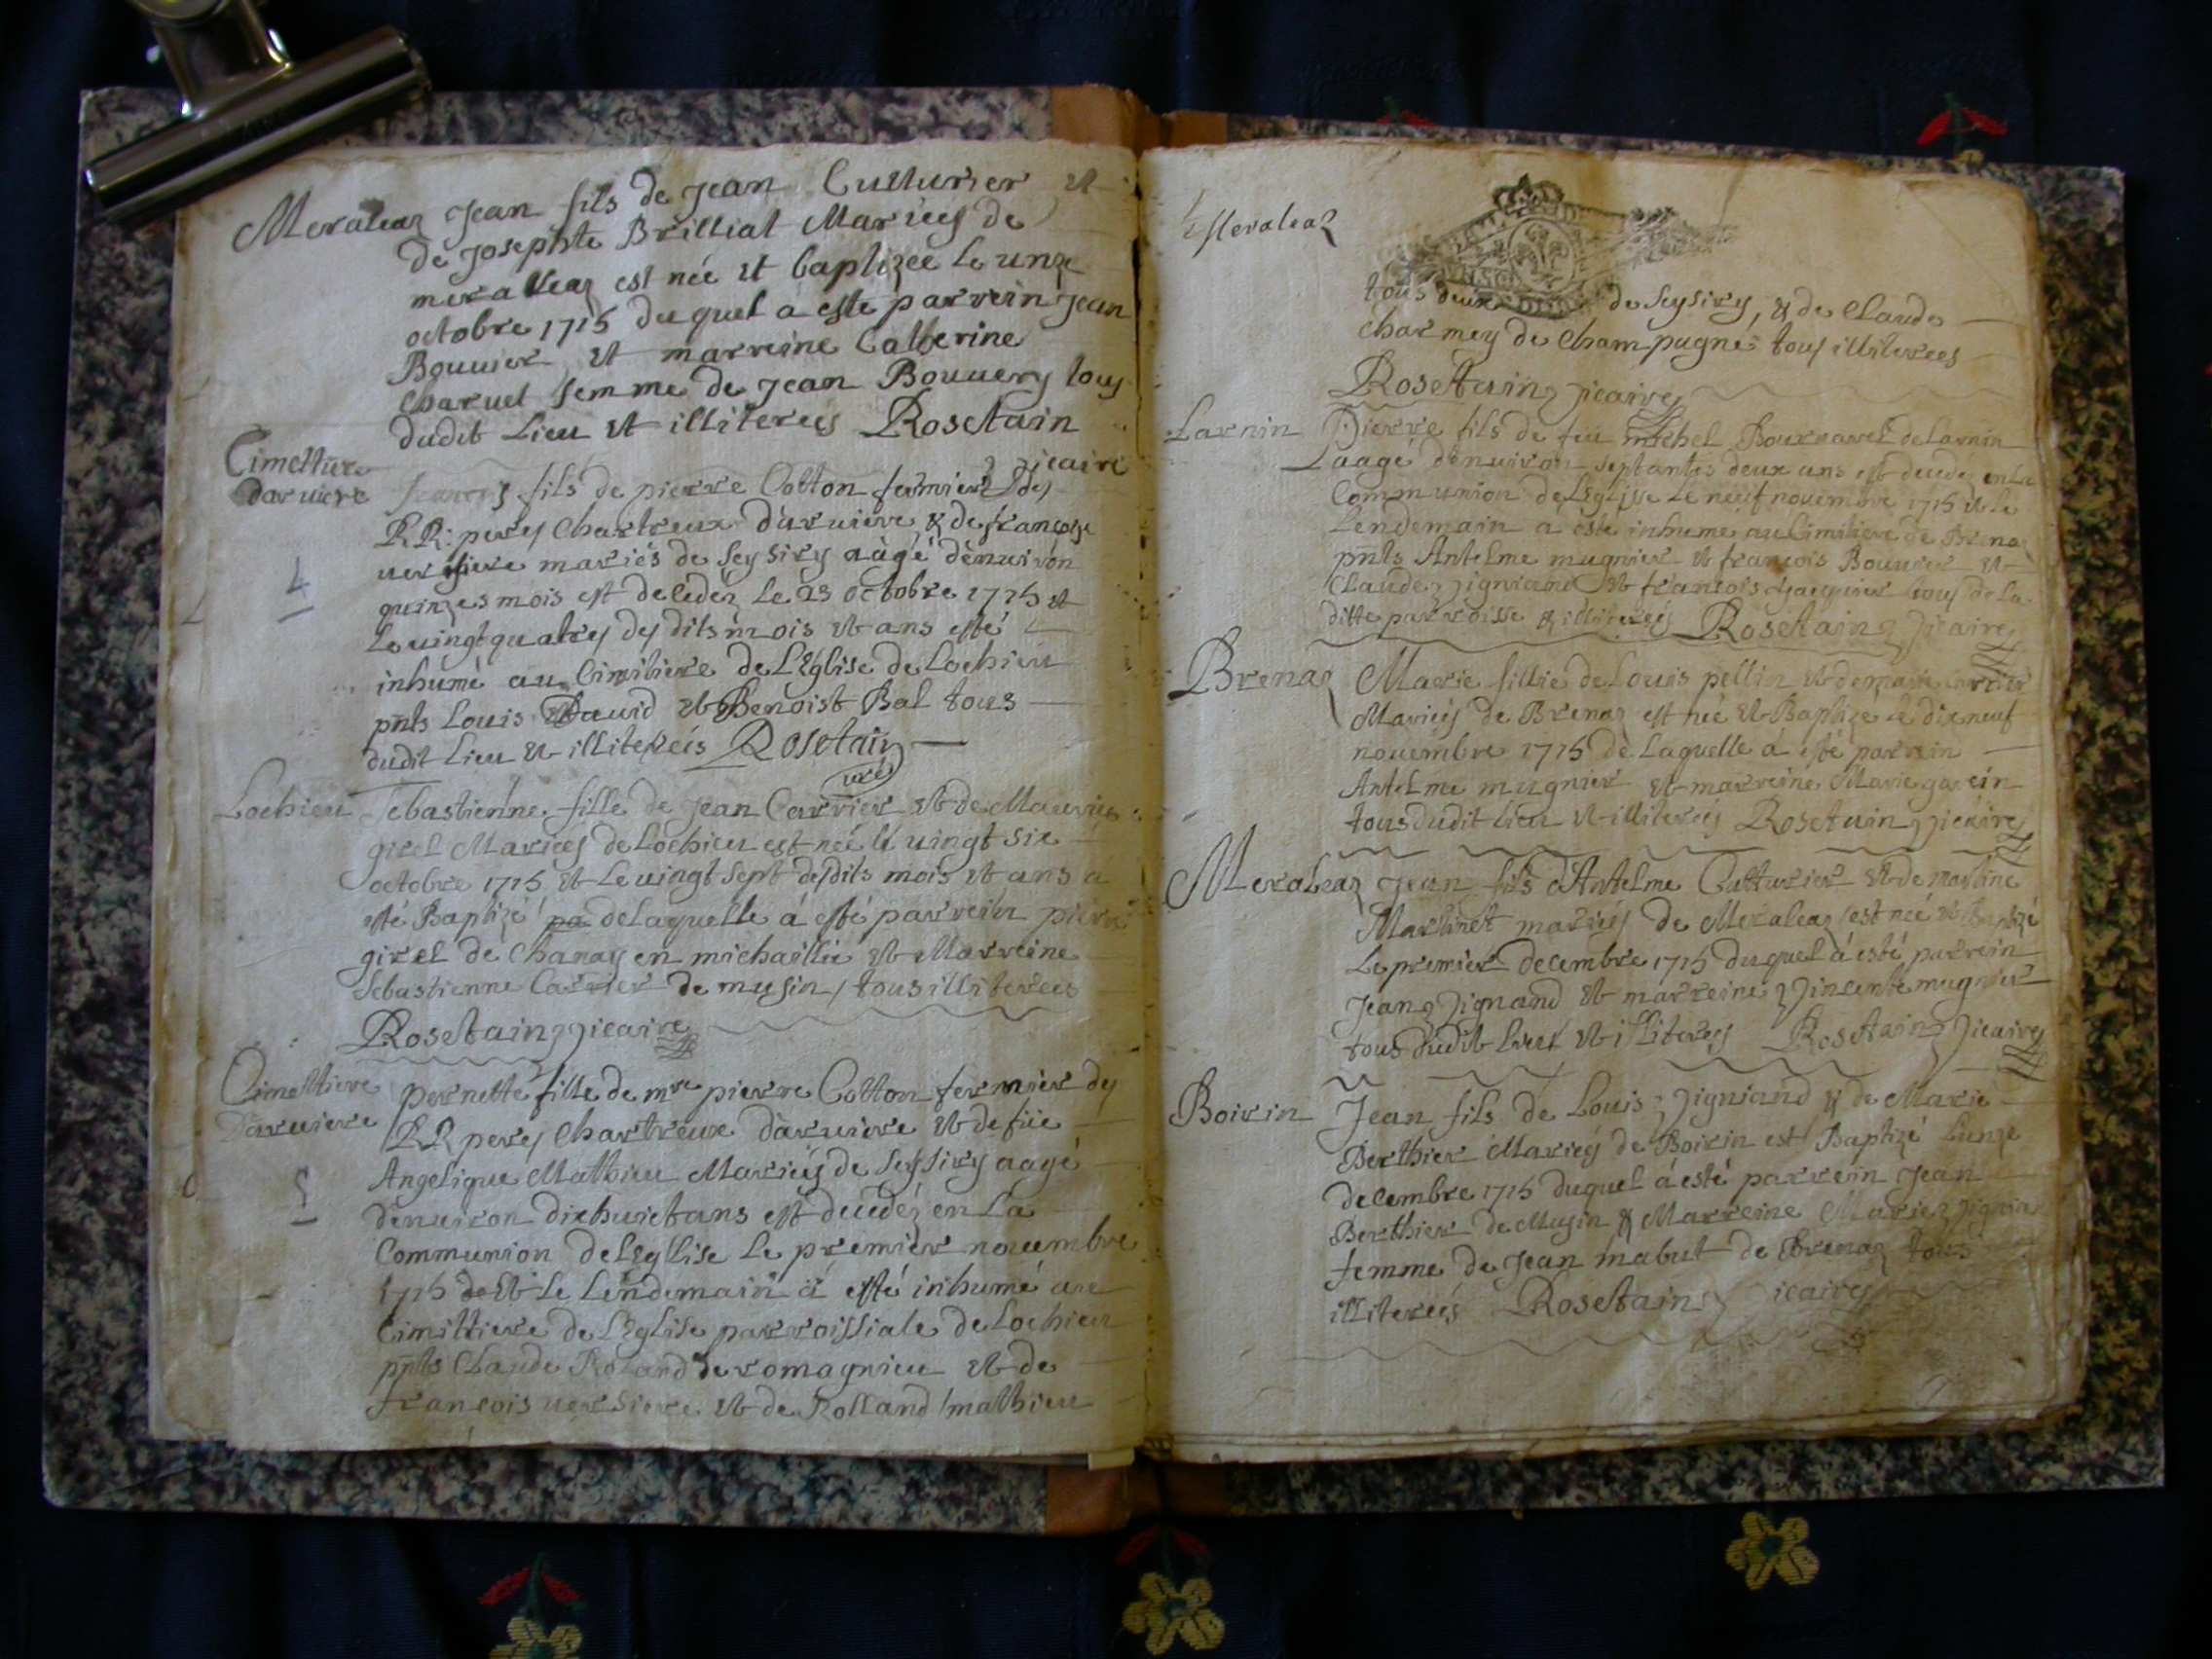 Meraleaz Jean fils de Jean Cutturier et
de Josephte Brilliat Mariés de
meraleaz est née et baptizée le unze
octobre 1715 duquel a esté parrein Jean
Bouuier et marreine Catherine
Charuet femme de Jean Bouuery tous
dudit Lieu et illiterées Rosetain
vicaire
Cimettiere
daruiere
fils de pierre Cotton fermier des
RR: peres Chartreux daruiere & de françoise
uersiere mariés de Seysiry aàgé dènuiron
quinzes mois est decedéz le 23 octobre 1715 et
Le uingtquatres des dits mois et ans esté
inhumé au Cimitiere de LEglise de Lochieu
pnts Louis Dauid et Benoist Bal tous
dudit Lieu et illiterées Rosetain
uicé
Lochieu Sebastienne fille de Jean Carrier et de Maurise
girel Mariées de Lochieu est née le uingt six
octobre 1715 et Le uingt Sept desdits mois et ans à
esté Baptizé pa de laquelle á esté parrein pierre
girel de Chanay en michaillie et Marreine
Sebastienne Carrier de musin, tous illiterees
Rosetain vicaire
Cimettiere
Daruiere
pernette fille de mre pierre Cotton fermier des
RR peres Chartreux dàruiere et de füe
Angelique Mathieu Mariés de Seysiry aagé
dénuiron dixhuictans est decedéz en La
Communion de LEglise Le premier nouembre
1715 de Et Le Lendemain á esté inhumé au
Cimittiere de LEglise parroissiale de Lochieu
pnts Claude Roland de romagnieu et de
françois uersiere et de Rolland mathieu
Meraleaz
tous deux de Seysiry, & de Claude
charmey de Champagne tous illiterees
Rosetain vicaire
Larnin Pierre fils de feu michel Bournarel de Larnin
aagé dénuiron septantes deux ans est decedez en La
Communion de LEglise Le neuf nouembre 1715 et Le
Lendemain a esté inhumé au Cimitiere de Brenaz
pnts Antelme mugnier et françois Bouuier et
Claude vigniand et francois Jacquier tous de La
ditte parroisse & illiterées Rosetain vicaire
Brenaz Marie fillie de Louis pellin et de marie Carrier
Mariés de Brenaz est née et Baptizé le dixneuf
nouembre 1715 de Laquelle á esté parrein
Antelme mugnier et marreine Marie garein
tous dudit Lieu et illiterées Rosetain vicaire
Meraleaz Jean fils d'Antelme Cutturier et de martine
Martinet mariés de Meraleaz est née et Baptizé
Le premier decembre 1715 duquel á esté parrein
Jean vignand et marreine vincente mugnier
tous dudit Lieu et illiterées Rosetain vicaire
Boirin Jean fils de Louis vigniand & de Marie
Berthier Mariés de Boirin est Baptizé Lunze
decembre 1715 duquel á esté parrein Jean
Berthier de Musin & Marreine Marie
femme de Jean mabut de Brenaz tous
illiterées Rosetain vicaire